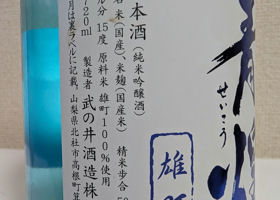 本酒（純米吟醸酒）
米（国産）、米麹（国産米）
精米歩合 50
分 15度 原料米 雄町100%使用
720ml 製造者 武の井酒造株
月は裏ラベルに記載。山梨県北杜市高根町箕
せいこう
雄町